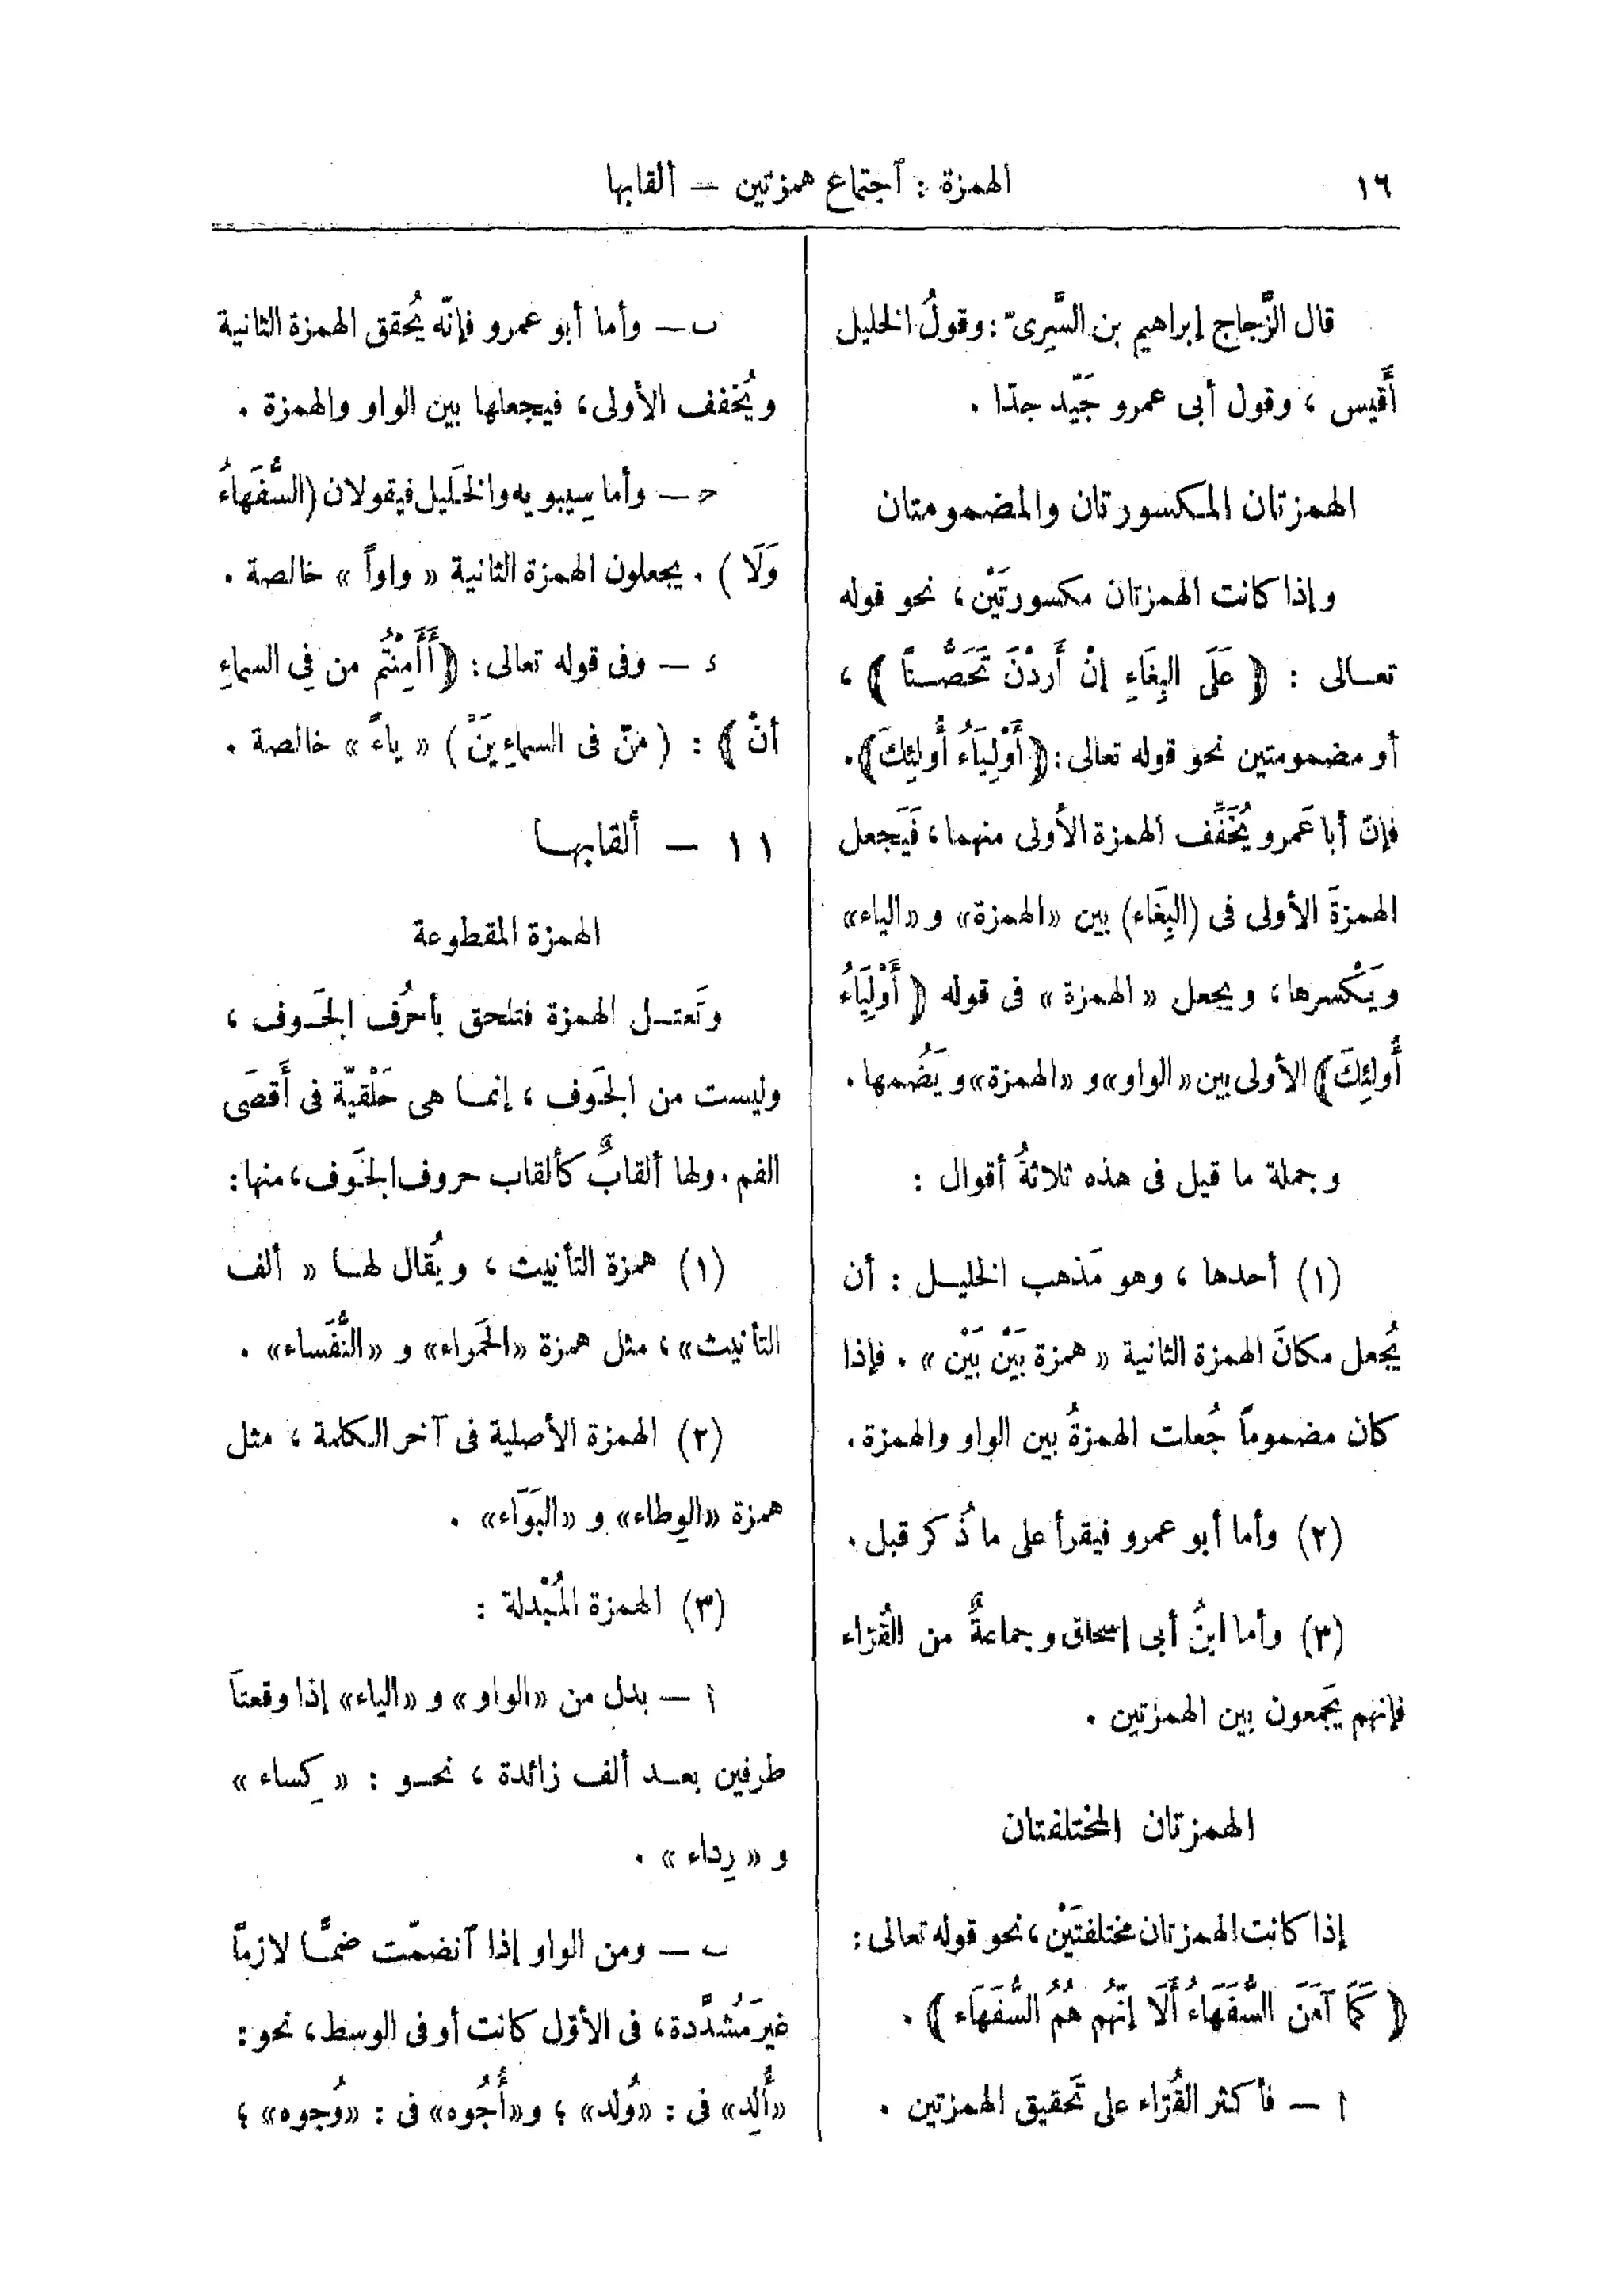 ١٦
الهمزة : آجتماع همزتين — ألقابها
قال الزَّجاج إبراهيم بن السَّرِىّ : وقولُ الخليل
أَقيس ، وقول أبى عمرو جَيّد جدّا .
الهمزتان المكسورتان والمضمومتان
وإذا كانت الهمزتان مكسورتَيْن ، نحو قوله
تعالى : ﴿ عَلَى البِغَاءِ إنْ أَردْنَ تَحَصُّنًا ﴾ ،
أو مضمومتين نحو قوله تعالى : ﴿ أَوْلِيَاءُ أُولئِكَ ﴾.
فإن أبا عَمرو يُخَفِّف الهمزة الأولى منهما ، فَيَجعل
الهمزةَ الأولى فى (البِغَاء) بين «الهمزة» و «الياء»
ويَكْسرها ، ويجعل « الهمزة » فى قوله ﴿ أَوْلِيَاءُ
أُولئِكَ ﴾ الأولى بين «الواو» و «الهمزة» ويَضُمها .
وجملة ما قيل فى هذه ثلاثةُ أقوال :
(١) أحدها ، وهو مَذهب الخليل : أن
يُجعل مكانَ الهمزة الثانية « همزة بَيْن بَيْن » . فإذا
كان مضموماً جُعلت الهمزةُ بين الواو والهمزة .
(٢) وأما أبو عمرو فيقرأ على ما ذُكر قبل .
(٣) وأما ابنُ أبى إسحاق وجماعةٌ من القُرّاء
فإنهم يَجمعون بين الهمزتين .
الهمزتان المختلفتان
إذا كانت الهمزتان مختلفتَيْن ، نحو قوله تعالى :
﴿ كَمَا آمَنَ السُّفَهَاءُ أَلَا إنّهُم هُمُ السُّفَهَاء ﴾ .
أ — فأكثر القُرّاء على تَحقيق الهمزتين .
ب — وأما أبو عمرو فإنّه يُحقق الهمزة الثانية
ويُخفف الأولى ، فيجعلها بين الواو والهمزة .
ح — وأما سِيبويه والخَليل فيقولان (السُّفَهاءُ
وَلَا ) . يجعلون الهمزة الثانية « واواً » خالصة .
د — وفى قوله تعالى : ﴿ أَأَمِنْتُم من فِى السماءِ
أنْ ﴾ : ( مَنْ فى السماءِ يَنْ ) « ياءً » خالصة .
١١ — ألقابها
الهمزة المقطوعة
وتَعتل الهمزة فتلحق بأحرُف الجَوف ،
وليست من الجَوف ، إنما هى حَلْقيّة فى أَقصَى
الفم . ولها ألقابٌ كألقاب حروف الجَوف ، منها :
(١) همزة التأنيث ، ويُقال لها « ألف
التأنيث» ، مثل همزة «الحَمراء» و «النُّفَساء» .
(٢) الهمزة الأصلية فى آخر الكلمة ، مثل
همزة «الوِطاء» و «البَوَاء» .
(٣) الهمزة المُبْدلة :
أ — بدل من «الواو» و «الياء» إذا وقعتَا
طرفين بعد ألف زائدة ، نحو : « كِساء »
و « رِداء » .
ب — ومن الواو إذا آنضمّت ضمًّا لازماً
غيرَ مُشدَّدة ، فى الأوّل كانت أو فى الوسط ، نحو :
«أُلِد» فى : «وُلد» ؛ و «أُجُوه» فى : «وُجوه» ؛